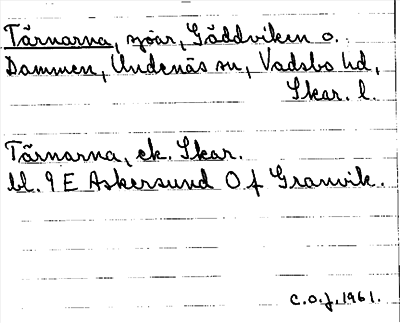 Tärnarna, sjöar, Gäddviken o.
Dammen, Undenäs sn, Vadsbo hd,
Skar. l.
Tärnarna, ek. Skar.
bl. 9 E Askersund 0 f Granvik.
C.O.J. 1961.